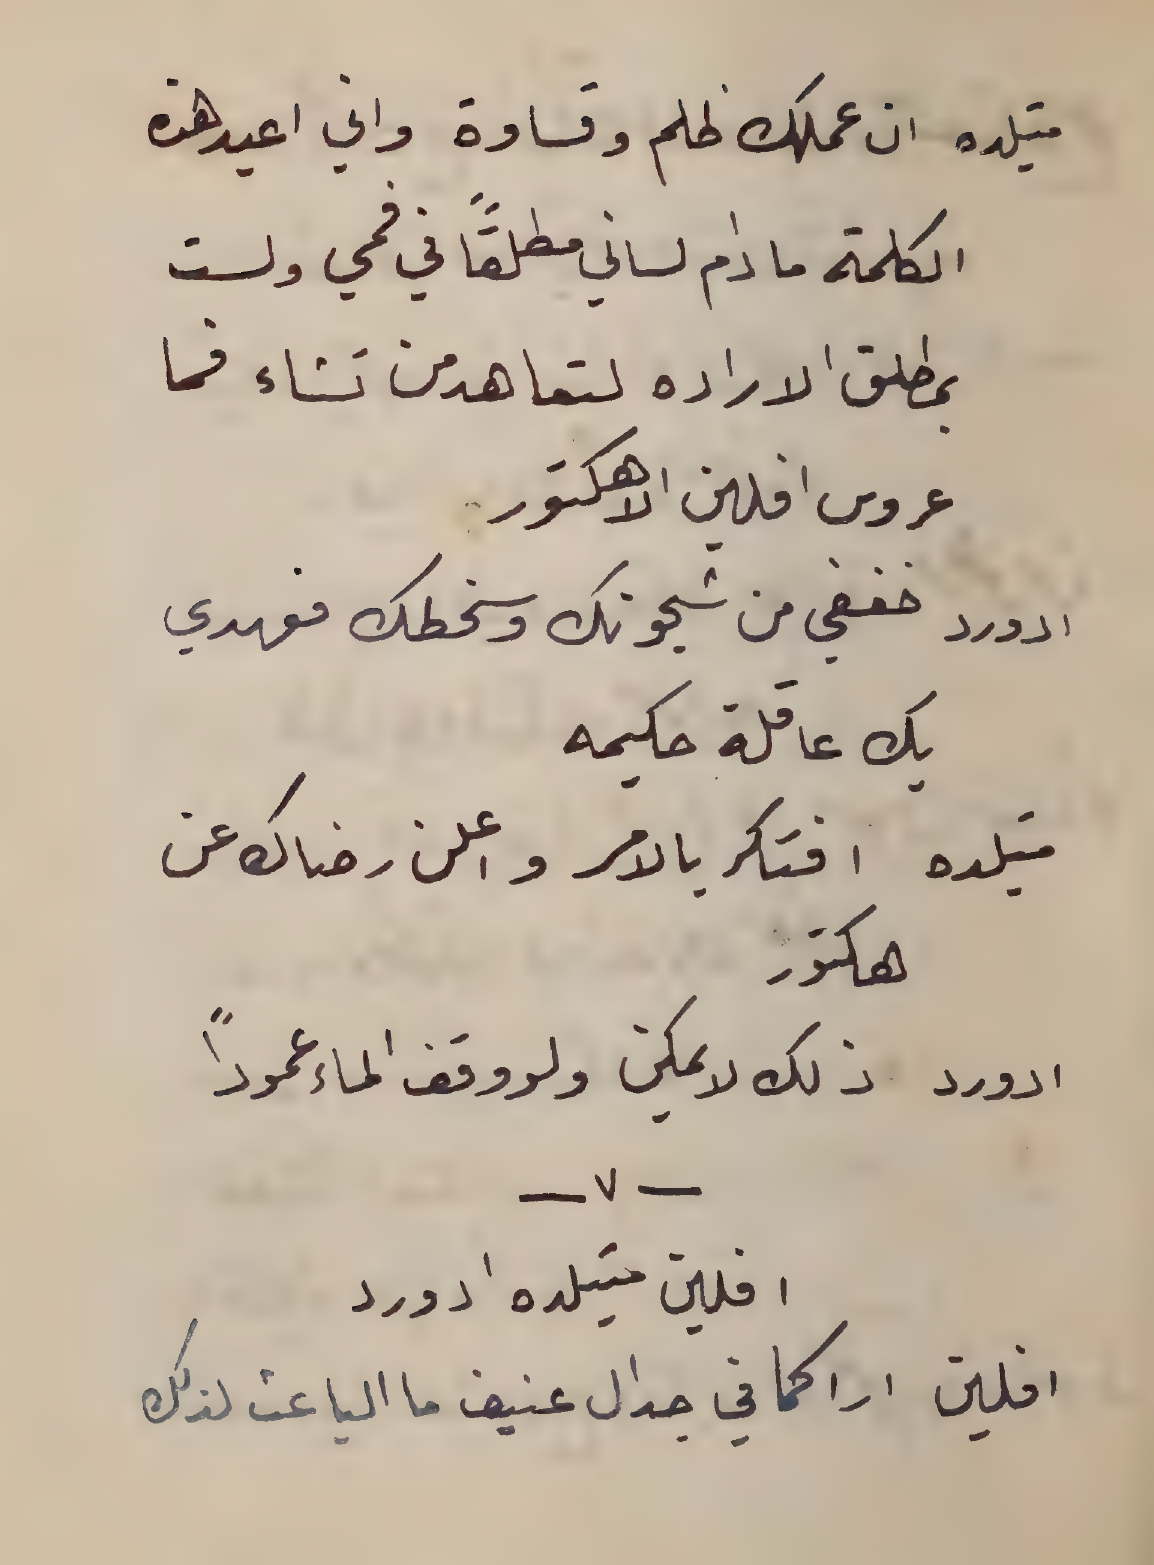 متيلده ان عملك ظلم وقساوة واني اعيد هذه
الكلمة ما دام لساني مطلقًا في فمي ولست
بمطلق الاراده لتعاهد من تشاء فما
عروس افلين الا هكتور
ادورد خففي من شجونك وسخطك فعهدي
بك عاقلة حكيمه
متيلده افتكر بالامر واعلن رضاك عن
هكتور
ادورد ذلك لا يمكن ولو وقف الماء عمودًا
— ٧ —
افلين متيلده ادورد
افلين اراكما في جدال عنيف ما الباعث لذلك